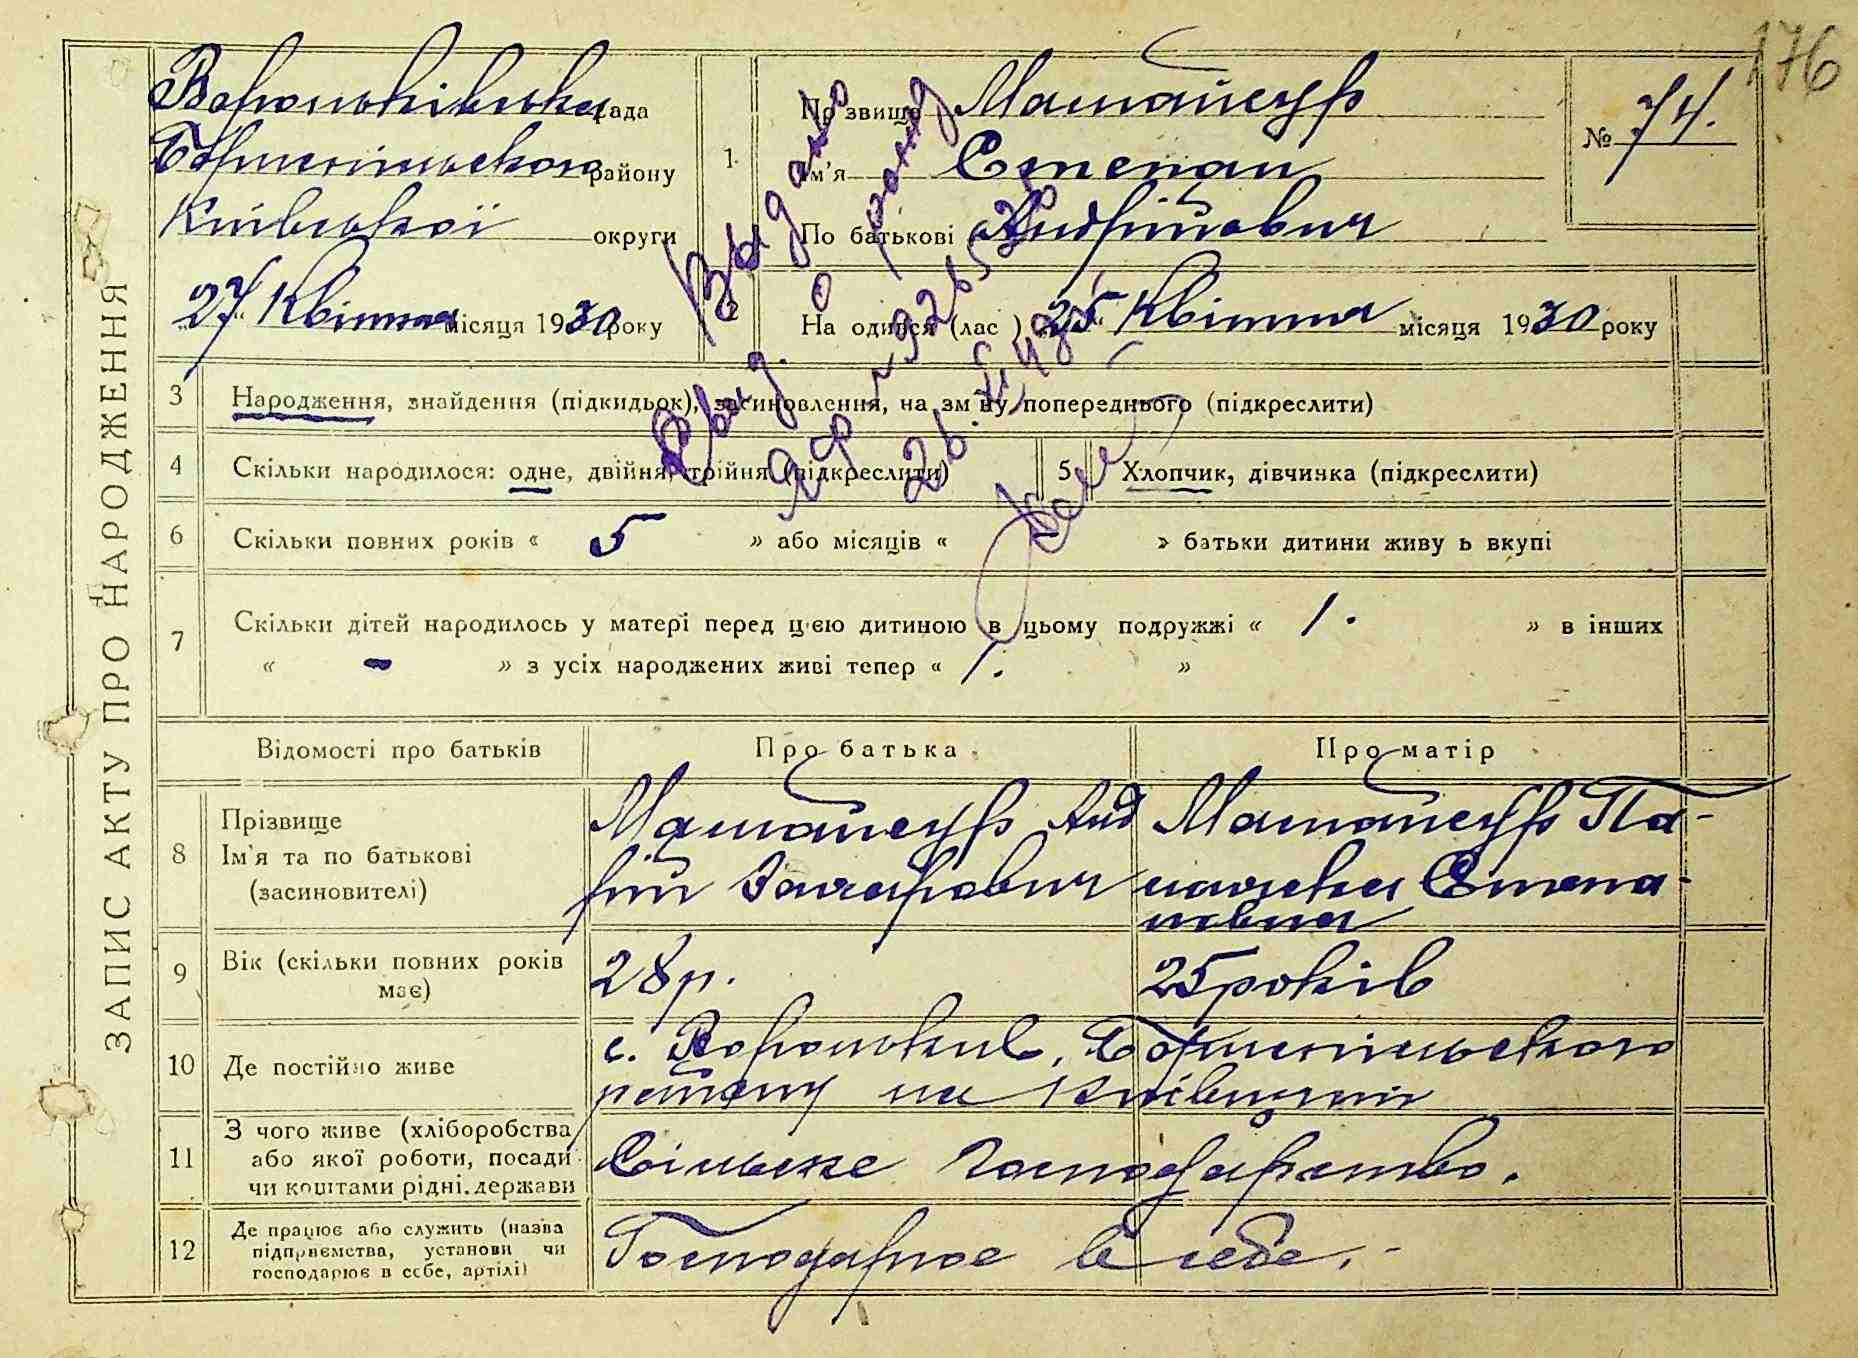 176
ЗАПИС АКТУ ПРО НАРОДЖЕННЯ
Вороньківська рада
Бориспільського району
Київської округи
27 Квітня місяця 1930 року
1. Прізвище Маштайсур
Ім'я Степан
По батькові Андрійович
№ 74.
2 На одився (лас ) 25 Квітня місяця 1930 року
Выдано
Свид. о рожд
26.
3 Народження, знайдення (підкидьок), засиновлення, на зм ну попереднього (підкреслити)
4 Скільки народилося: одне, двійня, трійня (підкреслити)
5 Хлопчик, дівчинка (підкреслити)
6 Скільки повних років « 5 » або місяців « » батьки дитини живу ь вкупі
7 Скільки дітей народилось у матері перед цією дитиною в цьому подружжі « 1. » в інших
« - » з усіх народжених живі тепер « 1. »
Відомості про батьків Про батька Про матір
8 Прізвище
Ім'я та по батькові
(засиновителі)
Маштайсур Анд
рій Захарович
Маштайсур Па-
наска Степа-
нівна
9 Вік (скільки повних років
має)
28 р. 25 років
10 Де постійно живе
с. Вороньків, Бориспільського
району на Київщині
11 З чого живе (хліборобства
або якої роботи, посади
чи коштами рідні, держави
Сільське господарство.
12 Де працює або служить (назва
підприємства, установи чи
господарює в себе, артілі)
Господарює в себе.-